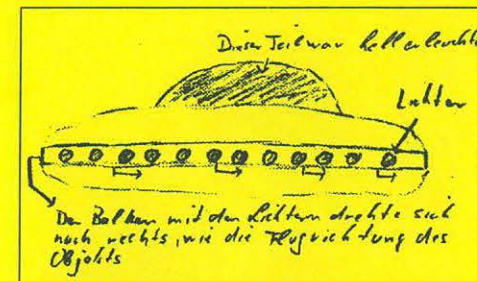 Dieser Teil war hell erleuchte
Lichter
Der Balken mit den Lichtern drehte sich
nach rechts, wie die Flugrichtung des
Objekts